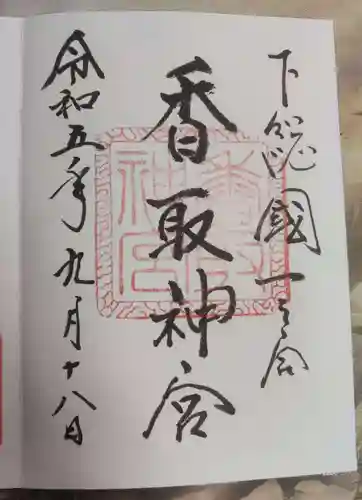 下総國一之宮
香取神宮
令和五年九月十八日